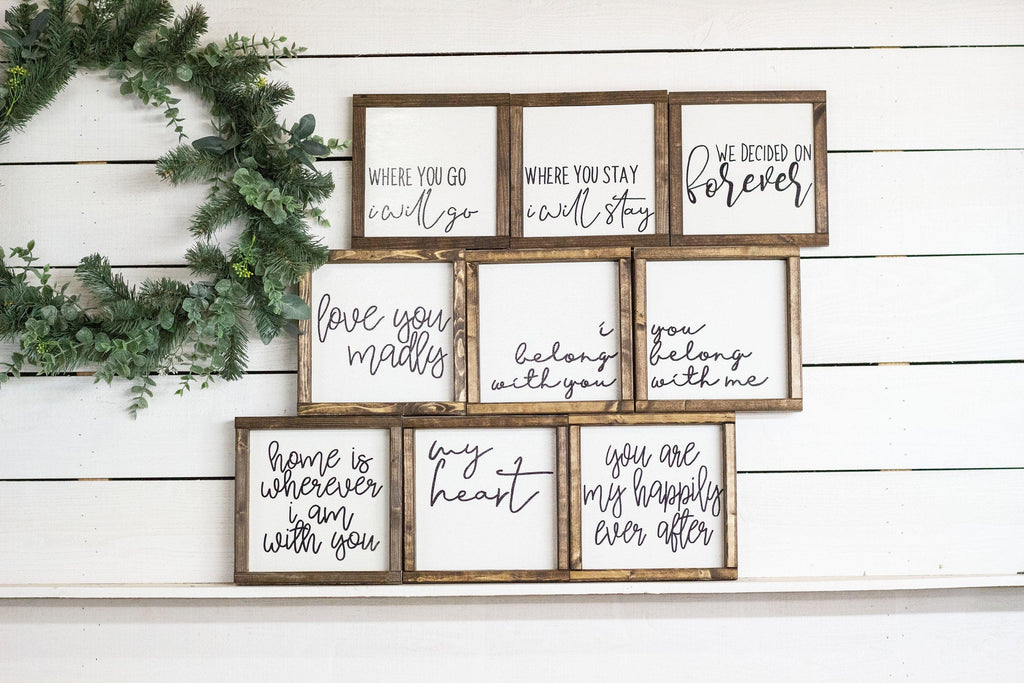 WHERE YOU GO
i will go
WHERE YOU STAY
i will stay
WE DECIDED ON
forever
love you
madly
i
belong
with you
you
belong
with me
home is
wherever
i am
with you
my
heart
you are
my happily
ever after